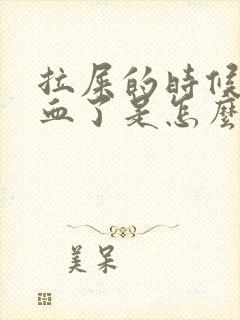 拉屎的時候
血了是怎麼
美呆